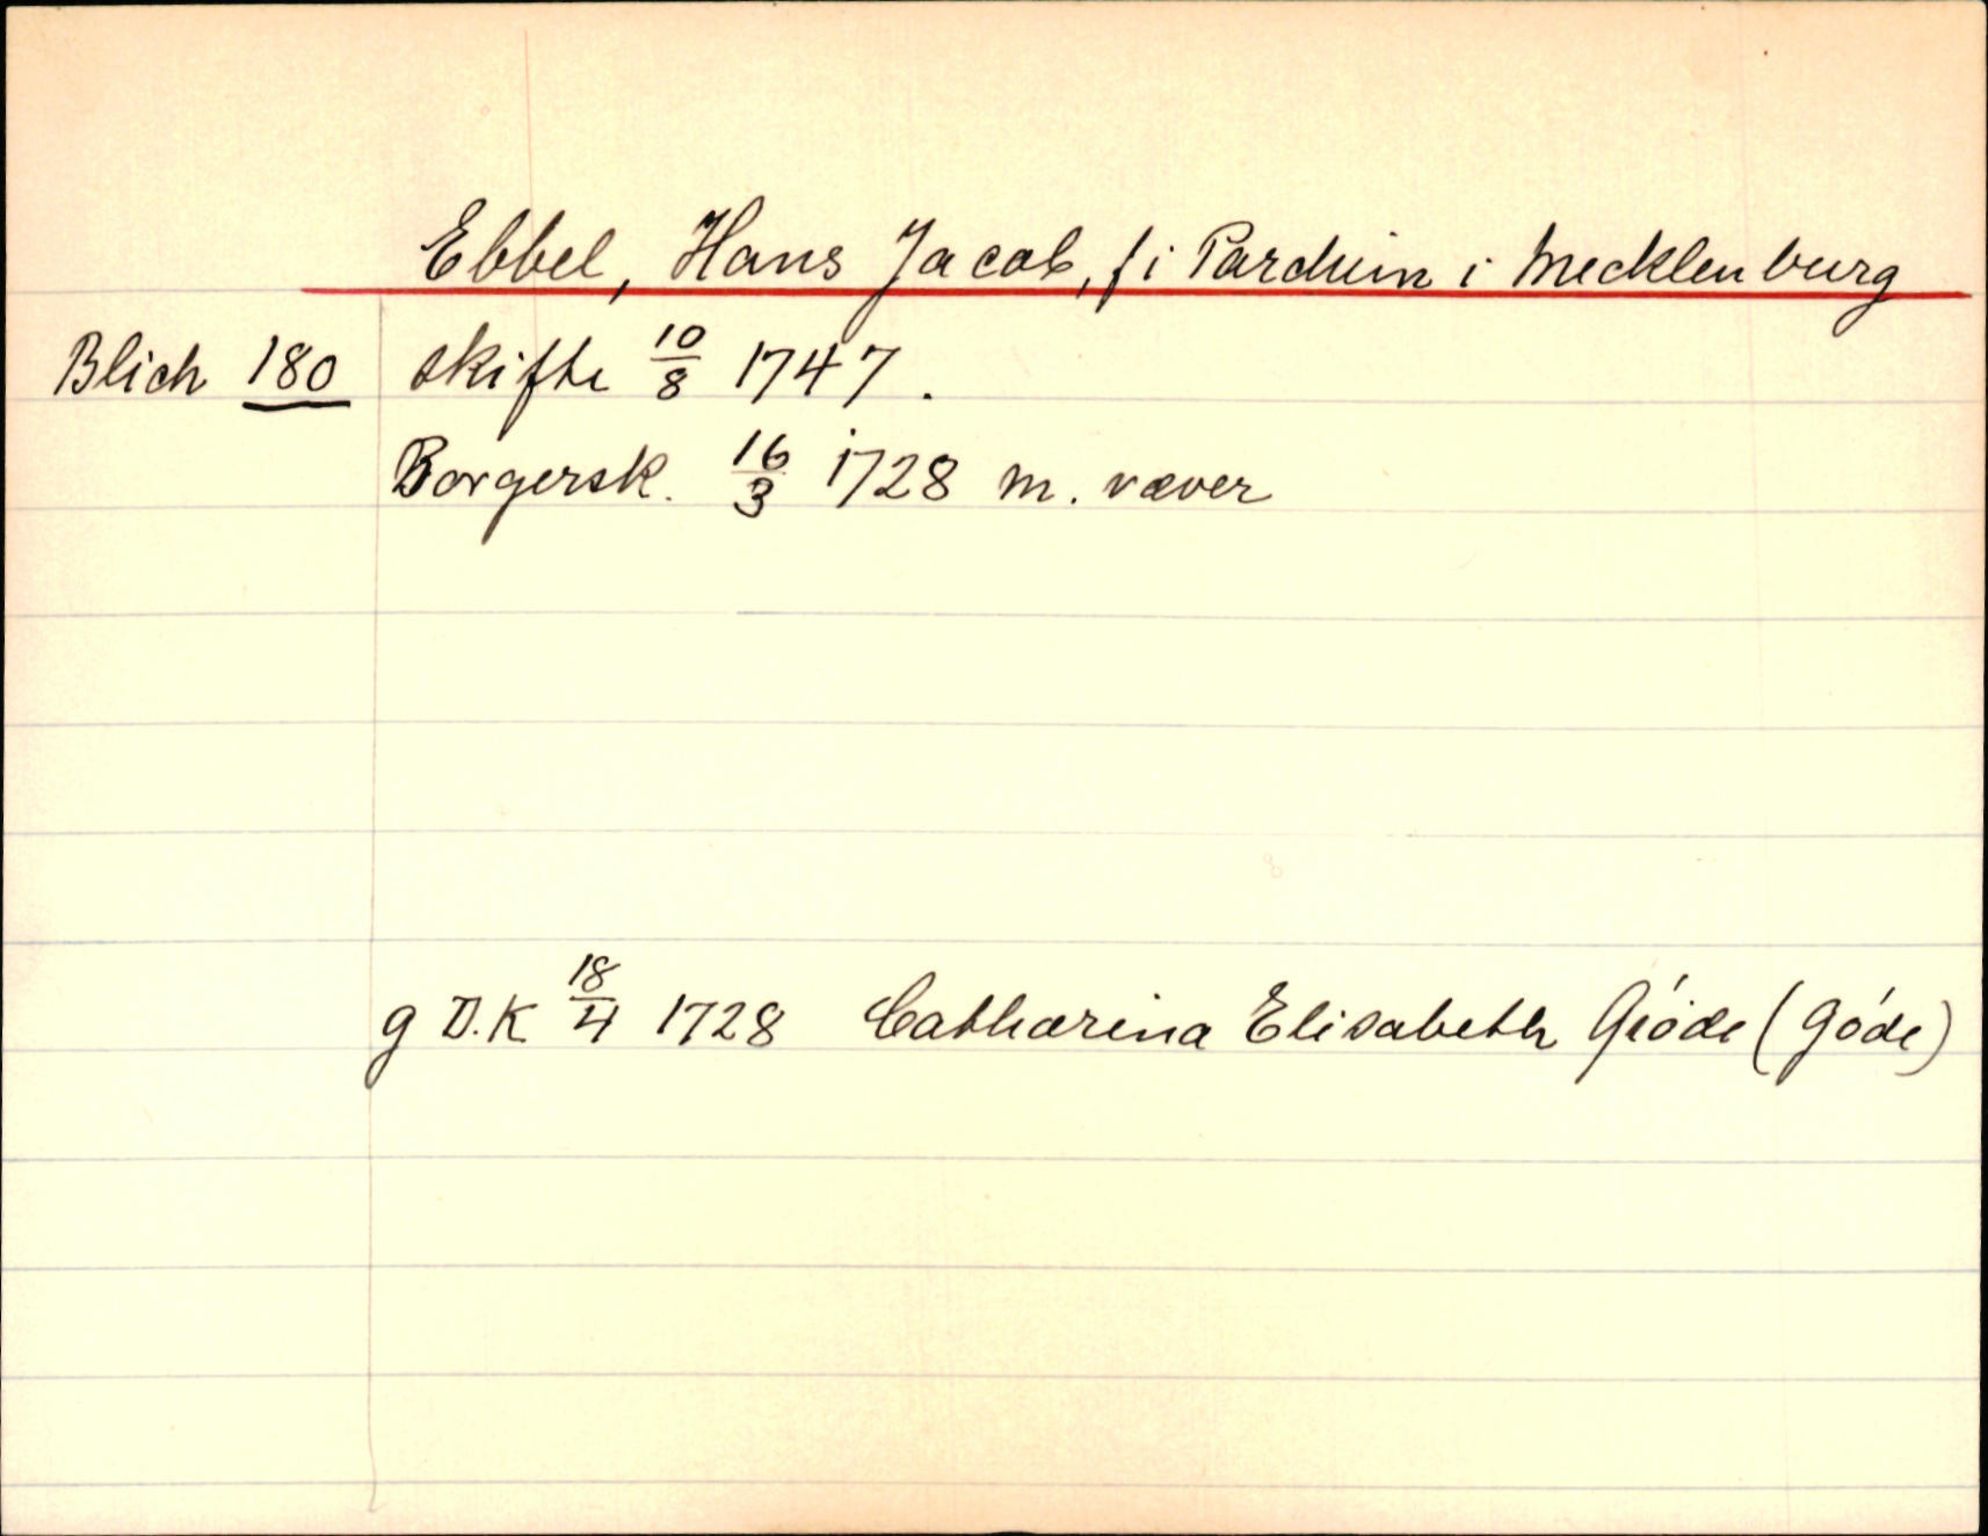 Ebbel, Hans Jacob, f i Parchim i Mecklenburg
Blich 180 skifte 10/8 1747.
Borgersk. 16/3 1728 m. væver
g D.K 18/4 1728 Catharina Elisabeth Gióde (Góde)